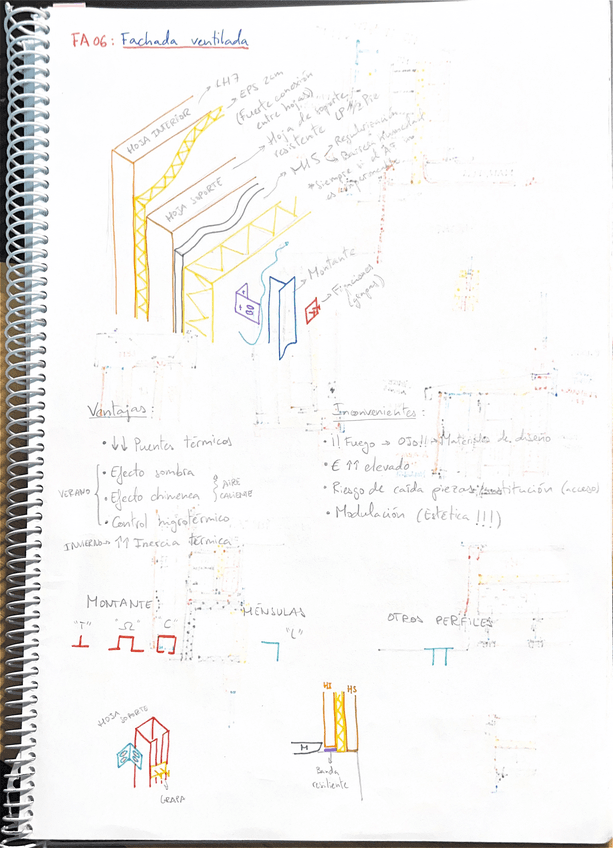 FA 06: Fachada ventilada
HOJA INTERIOR
LH7
EPS 2cm
(Fuerte conexión
entre hojas)
Hoja de soporte
resistente LP 1/2 Pie
HOJA SOPORTE
MHS
Regularización
Barrera humedad
*Siempre si el AT no
es impermeable
Montante
Fijaciones
(grapas)
Ventajas:
• ↓↓ Puentes térmicos
VERANO
• Efecto sombra
• Efecto chimenea
AIRE
CALIENTE
• Control higrotérmico
INVIERNO → ↑↑ Inercia térmica
Inconvenientes:
• ¡¡ Fuego → OJO!! → Materiales de diseño
• € ↑↑ elevado
• Riesgo de caída piezas/sustitución (acceso)
• Modulación (Estética !!!)
MONTANTE
"T" "Ω" "C"
MÉNSULAS
"L"
OTROS PERFILES
HOJA
SOPORTE
GRAPA
HI HS
H
Banda
resiliente